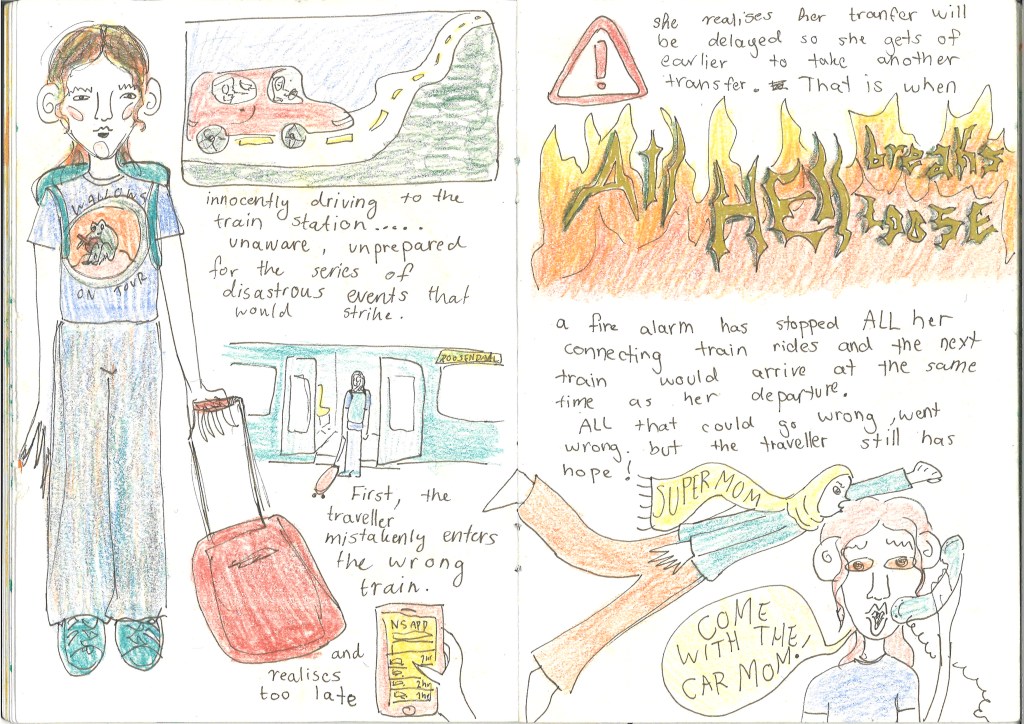 WALLOWS
ON TOUR
innocently driving to the
train station.....
unaware, unprepared
for the series of
disastrous events that
would strike.
ROOSENDAAL
First, the
traveller
mistakenly enters
the wrong
train.
and
realises
too late
NS APP
2hr
2hr
she realises her tranfer will
be delayed so she gets of
earlier to take another
transfer. That is when
All HEll breaks
LOOSE
a fire alarm has stopped ALL her
connecting train rides and the next
train would arrive at the same
time as her departure.
ALL that could go wrong, went
wrong, but the traveller still has
hope!
SUPER MOM
COME
WITH THE
CAR MOM!